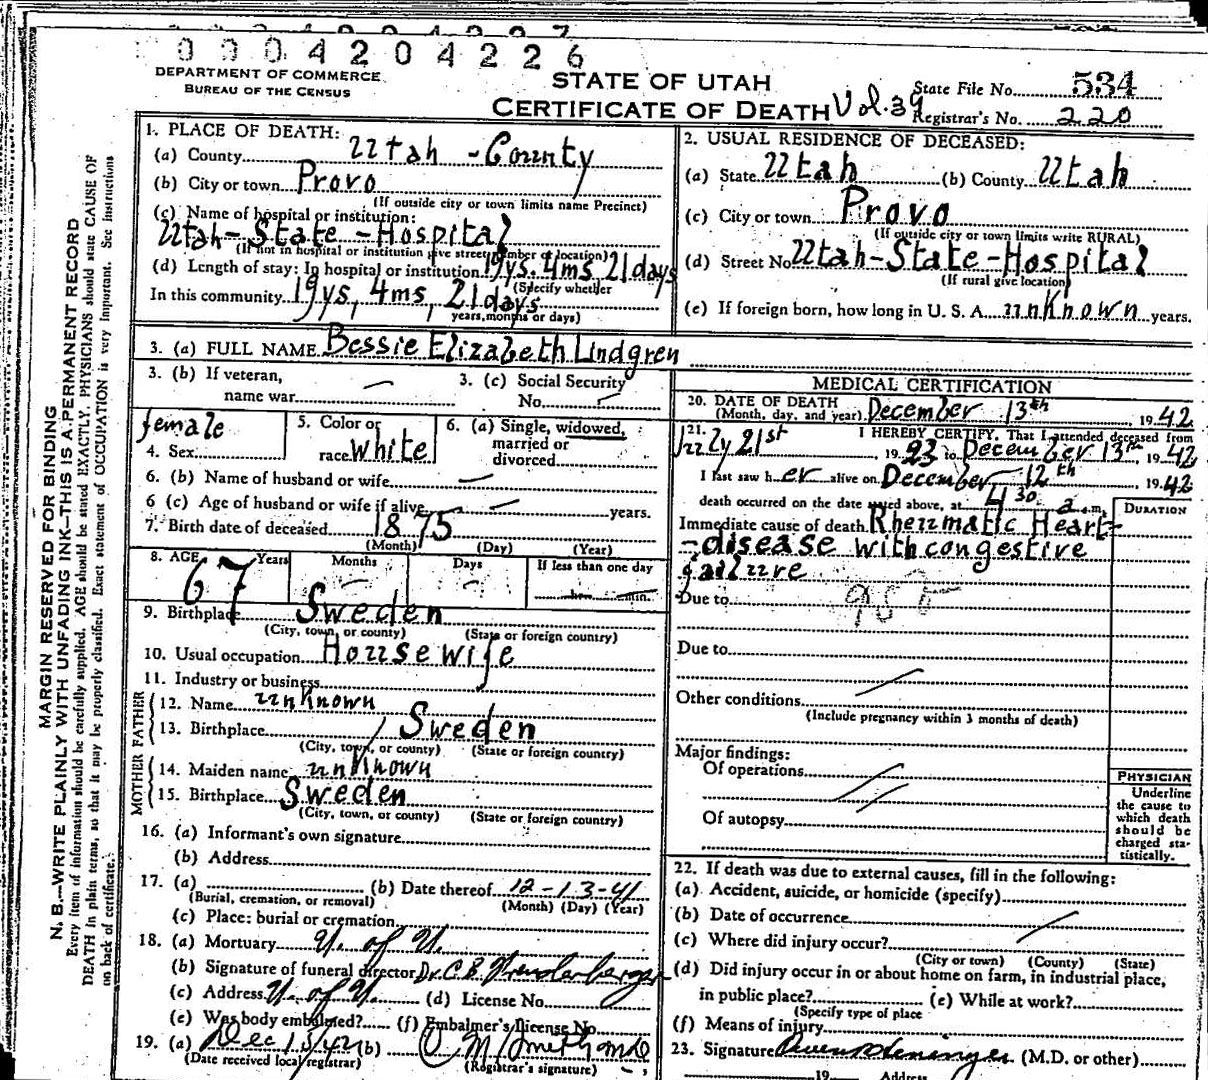 0 0 0 4 2 0 4 2 2 6
DEPARTMENT OF COMMERCE
BUREAU OF THE CENSUS
STATE OF UTAH
CERTIFICATE OF DEATH
Vol. 39
State File No. 534
Registrar's No. 220
MARGIN RESERVED FOR BINDING
N. B.—WRITE PLAINLY WITH UNFADING INK—THIS IS A PERMANENT RECORD
Every item of information should be carefully supplied. AGE should be stated EXACTLY. PHYSICIANS should state CAUSE OF
DEATH in plain terms, so that it may be properly classified. Exact statement of OCCUPATION is very important. See Instructions
on back of certificate.
1. PLACE OF DEATH:
(a) County Utah - County
(b) City or town Provo
(If outside city or town limits name Precinct)
(c) Name of hospital or institution:
Utah - State - Hospital
(If not in hospital or institution give street number or location)
(d) Length of stay: In hospital or institution 19ys. 4ms 21days
(Specify whether
In this community 19ys, 4ms, 21days
years, months or days)
2. USUAL RESIDENCE OF DECEASED:
(a) State Utah (b) County Utah
(c) City or town Provo
(If outside city or town limits write RURAL)
(d) Street No. Utah-State-Hospital
(If rural give location)
(e) If foreign born, how long in U. S. A. unknown years.
3. (a) FULL NAME Bessie Elizabeth Lindgren
3. (b) If veteran,
name war —
3. (c) Social Security
No.
female
4. Sex
5. Color or
race White
6. (a) Single, widowed,
married or
divorced
6. (b) Name of husband or wife —
6 (c) Age of husband or wife if alive — years.
7. Birth date of deceased 1875
(Month) (Day) (Year)
8. AGE Years Months Days If less than one day
67 — — hr. min.
9. Birthplace Sweden
(City, town, or county) (State or foreign country)
10. Usual occupation Housewife
11. Industry or business
FATHER
12. Name unknown
13. Birthplace Sweden
(City, town, or county) (State or foreign country)
MOTHER
14. Maiden name unknown
15. Birthplace Sweden
(City, town, or county) (State or foreign country)
16. (a) Informant's own signature
(b) Address
17. (a) (b) Date thereof 12-13-41
(Burial, cremation, or removal) (Month) (Day) (Year)
(c) Place: burial or cremation
18. (a) Mortuary U. of U.
(b) Signature of funeral director Dr. C. B.
(c) Address U. of U. (d) License No.
(e) Was body embalmed? (f) Embalmer's License No.
19. (a) Dec 13/42 (b)
(Date received local registrar) (Registrar's signature)
MEDICAL CERTIFICATION
20. DATE OF DEATH
(Month, day, and year) December 13th 1942
21. I HEREBY CERTIFY, That I attended deceased from
July 21st 1923 to December 13th 1942
I last saw her alive on December 12th 1942
death occurred on the date stated above, at 4 30 a. m.
DURATION
Immediate cause of death Rheumatic Heart-
-disease with congestive
failure
Due to
Due to
Other conditions
(Include pregnancy within 3 months of death)
Major findings:
Of operations
Of autopsy
PHYSICIAN
Underline
the cause to
which death
should be
charged sta-
tistically.
22. If death was due to external causes, fill in the following:
(a) Accident, suicide, or homicide (specify)
(b) Date of occurrence
(c) Where did injury occur?
(City or town) (County) (State)
(d) Did injury occur in or about home on farm, in industrial place,
in public place? (e) While at work?
(Specify type of place
(f) Means of injury
23. Signature (M.D. or other)
19 Address